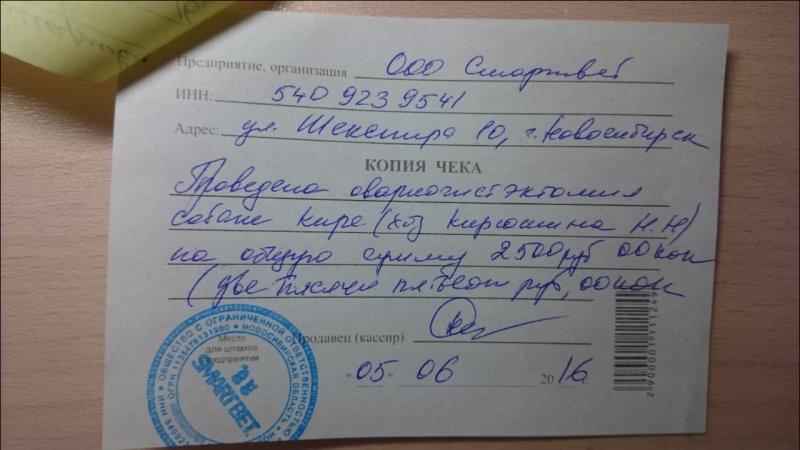 Предприятие, организация ООО Смартвет
ИНН: 540 923 9541
Адрес: ул. Шекспира 10, г. Новосибирск
КОПИЯ ЧЕКА
Проведена овариогистэктомия
собаке Кире (хоз Кирюшина Н.Н)
на общую сумму 2500 руб 00 коп
(две тысячи пятьсот руб, 00 коп
Продавец (кассир)
Место
для штампа
предприятия
ОБЩЕСТВО С ОГРАНИЧЕННОЙ ОТВЕТСТВЕННОСТЬЮ
НОВОСИБИРСКАЯ ОБЛАСТЬ
ОГРН 1135476131900
SМАRТВЕТ
"05" 06 2016 г.
2900001111249